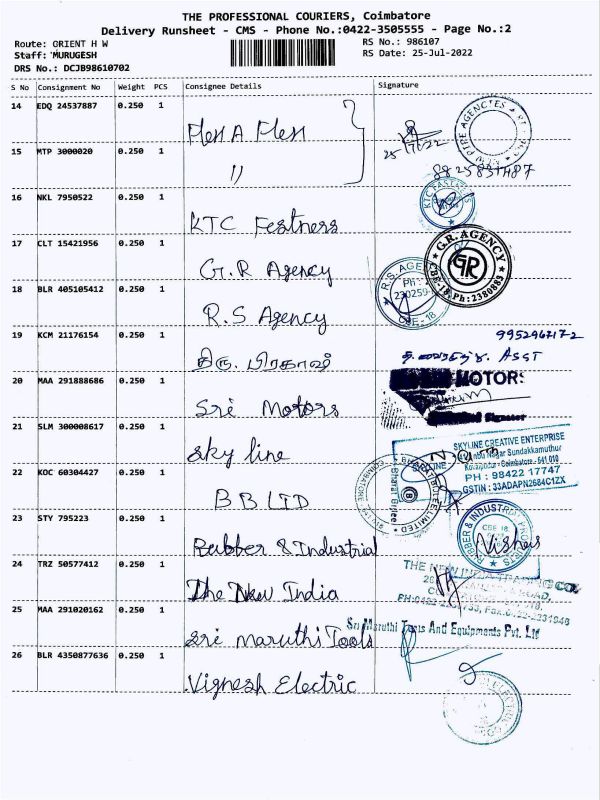 THE PROFESSIONAL COURIERS, Coimbatore
Delivery Runsheet - CMS - Phone No.:0422-3505555 - Page No.:2
Route: ORIENT H W
Staff: MURUGESH
DRS No.: DCJB98610702
RS No.: 986107
RS Date: 25-Jul-2022
S No Consignment No Weight PCS Consignee Details Signature
14 EDQ 24537887 0.250 1 Flex A Flex
25/7/22
PIPE AGENCIES
15 MTP 3000020 0.250 1 "
16 NKL 7950522 0.250 1 KTC Festners
KTC FASTNERS
17 CLT 15421956 0.250 1 G.R Agency
G.R. AGENCY
GR
CBE-18. Ph: 2380883
18 BLR 405105412 0.250 1 R.S Agency
R.S. AGE
Ph:
230259
CBE-18
19 KCM 21176154 0.250 1 திரு. பிரகாஷ்
9952967172
ASST
20 MAA 291888686 0.250 1 Sri Motors
MOTORS
21 SLM 300008617 0.250 1 Sky line
SKYLINE CREATIVE ENTERPRISE
Nagar Sundakkamuthur
Kovaipudur - Coimbatore - 641 010
PH : 98422 17747
GSTIN : 33ADAPN2684C1ZX
22 KOC 60304427 0.250 1 BB LTD
Bharat Bijlee
BHARAT BIJLEE LIMITED
COIMBATORE
23 STY 795223 0.250 1 Rubber & Industrial
RUBBER & INDUSTRIAL PRODUCTS
CBE 18
24 TRZ 50577412 0.250 1 The New India
THE NEW INDIA TRADING CO.
ROAD,
25 MAA 291020162 0.250 1 Sri maruthi Tools
Sri Maruthi Tools And Equipments Pvt. Ltd
26 BLR 4350877636 0.250 1 Vignesh Electric
ELECTRIC